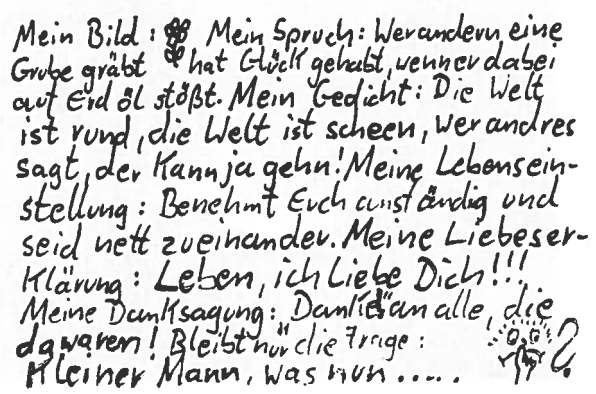 Mein Bild: Mein Spruch: Wer andern eine
Grube gräbt hat Glück gehabt, wenn er dabei
auf Erdöl stößt. Mein Gedicht: Die Welt
ist rund, die Welt ist scheen, wer andres
sagt, der kann ja gehn! Meine Lebensein-
stellung: Benehmt Euch anständig und
seid nett zueinander. Meine Liebeser-
klärung: Leben, ich liebe Dich!!!
Meine Danksagung: Dank an alle, die
da waren! Bleibt nur die Frage:
Kleiner Mann, was nun ..... ?